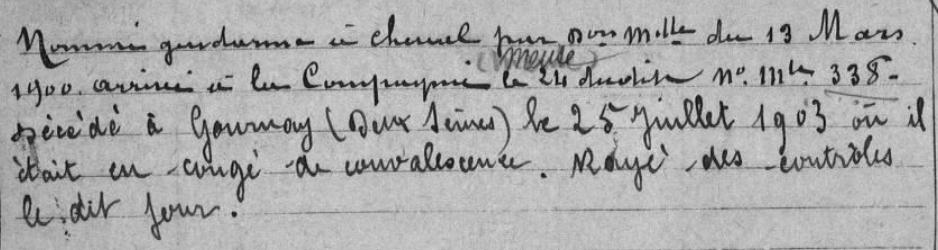 Nommé gendarme à cheval par Don Mlle du 13 Mars
(Meuse)
1900. arrivé à la Compagnie le 24 dudit No. Mle 338-
Décédé à Gournay (Deux Sèvres) le 25 Juillet 1903 où il
était en congé de convalescence. Rayé des contrôles
le dit jour.